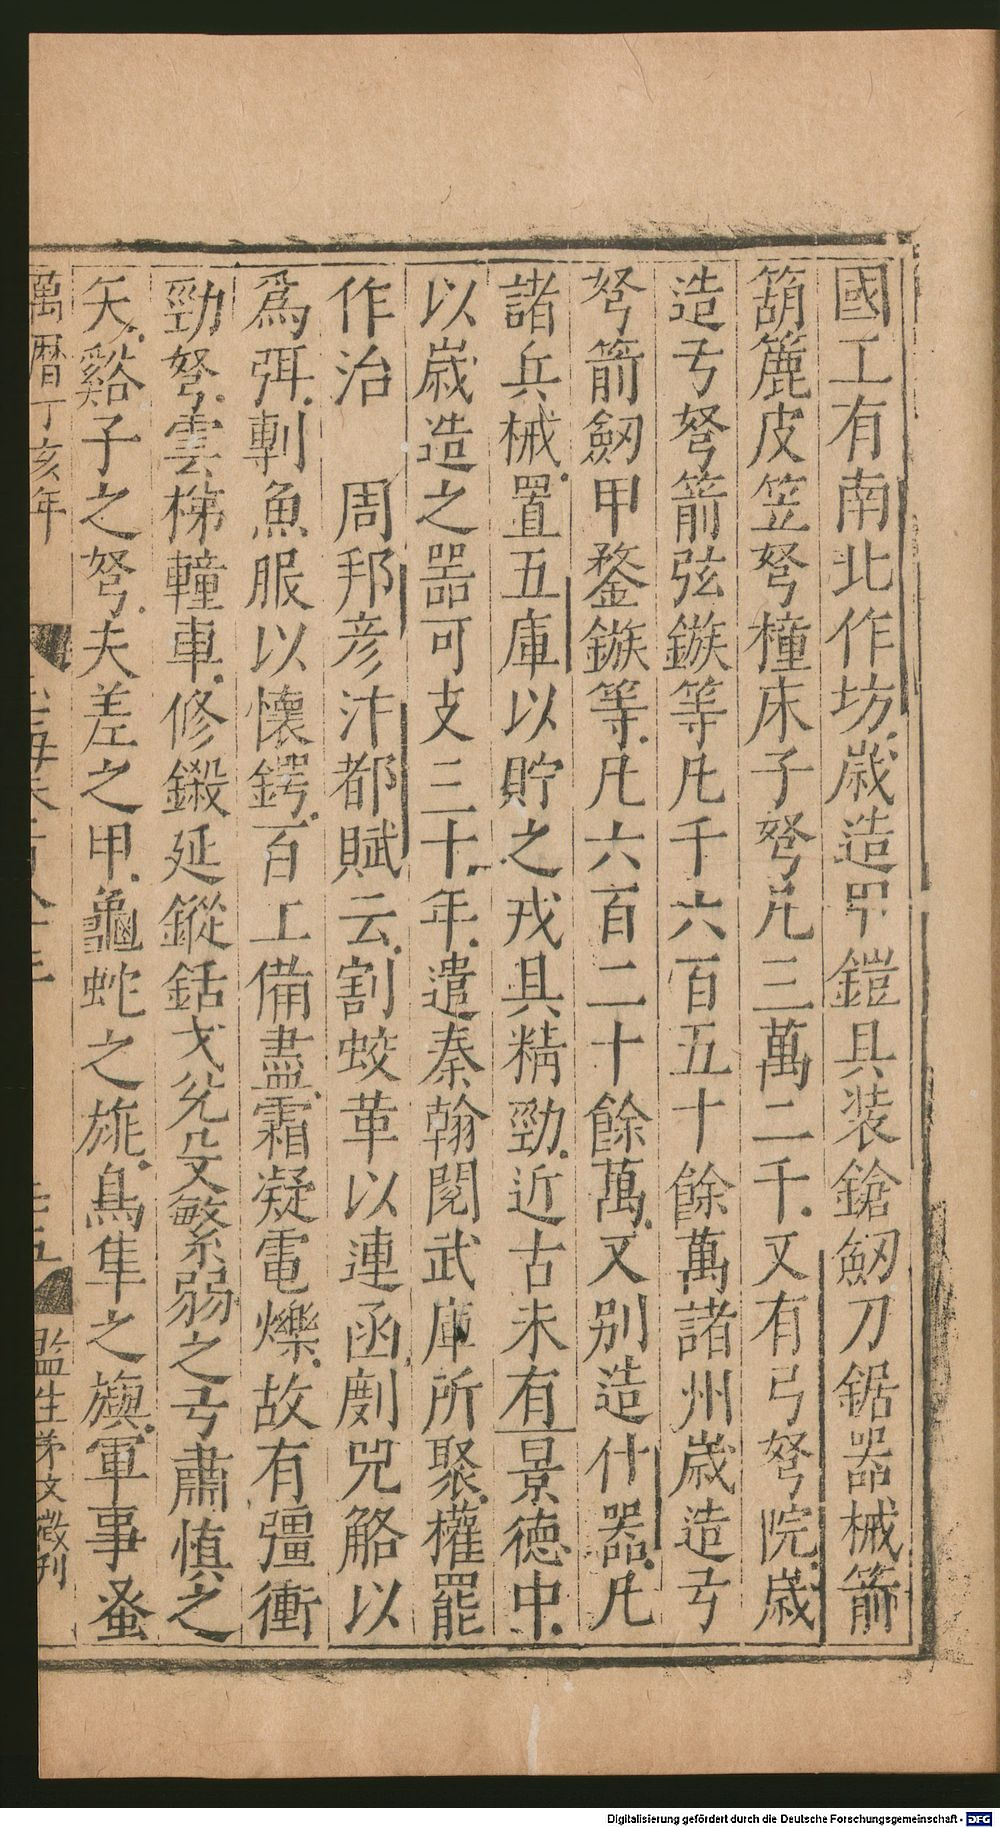 國工有南北作坊歲造甲鎧具裝鎗劒刀鋸器械箭
箶簏皮笠弩橦床子弩凡三萬二千又有弓弩院歲
造弓弩箭弦鏃等凡千六百五十餘萬諸州歲造弓
弩箭劒甲鍪鏃等凡六百二十餘萬又别造什器凡
諸兵械置五庫以貯之戎具精勁近古未有景德中
以歲造之器可支三十年遣秦翰閱武庫所聚權罷
作治　周邦彦汴都賦云割蛟革以連函剫兕觡以
爲弭剸魚服以懷鍔百工備盡霜凝電爍故有彊衝
勁弩雲梯轒車修鎩延鏦銛戈兊殳繁弱之弓肅慎之
矢谿子之弩夫差之甲龜蛇之旐鳥隼之旟軍事蚤
萬曆丁亥年
監生茅文徵刊
Digitalisierung gefördert durch die Deutsche Forschungsgemeinschaft - DFG